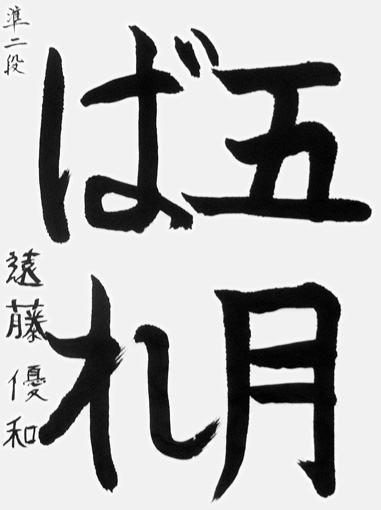 五月
ばれ
準二段
遠藤優和